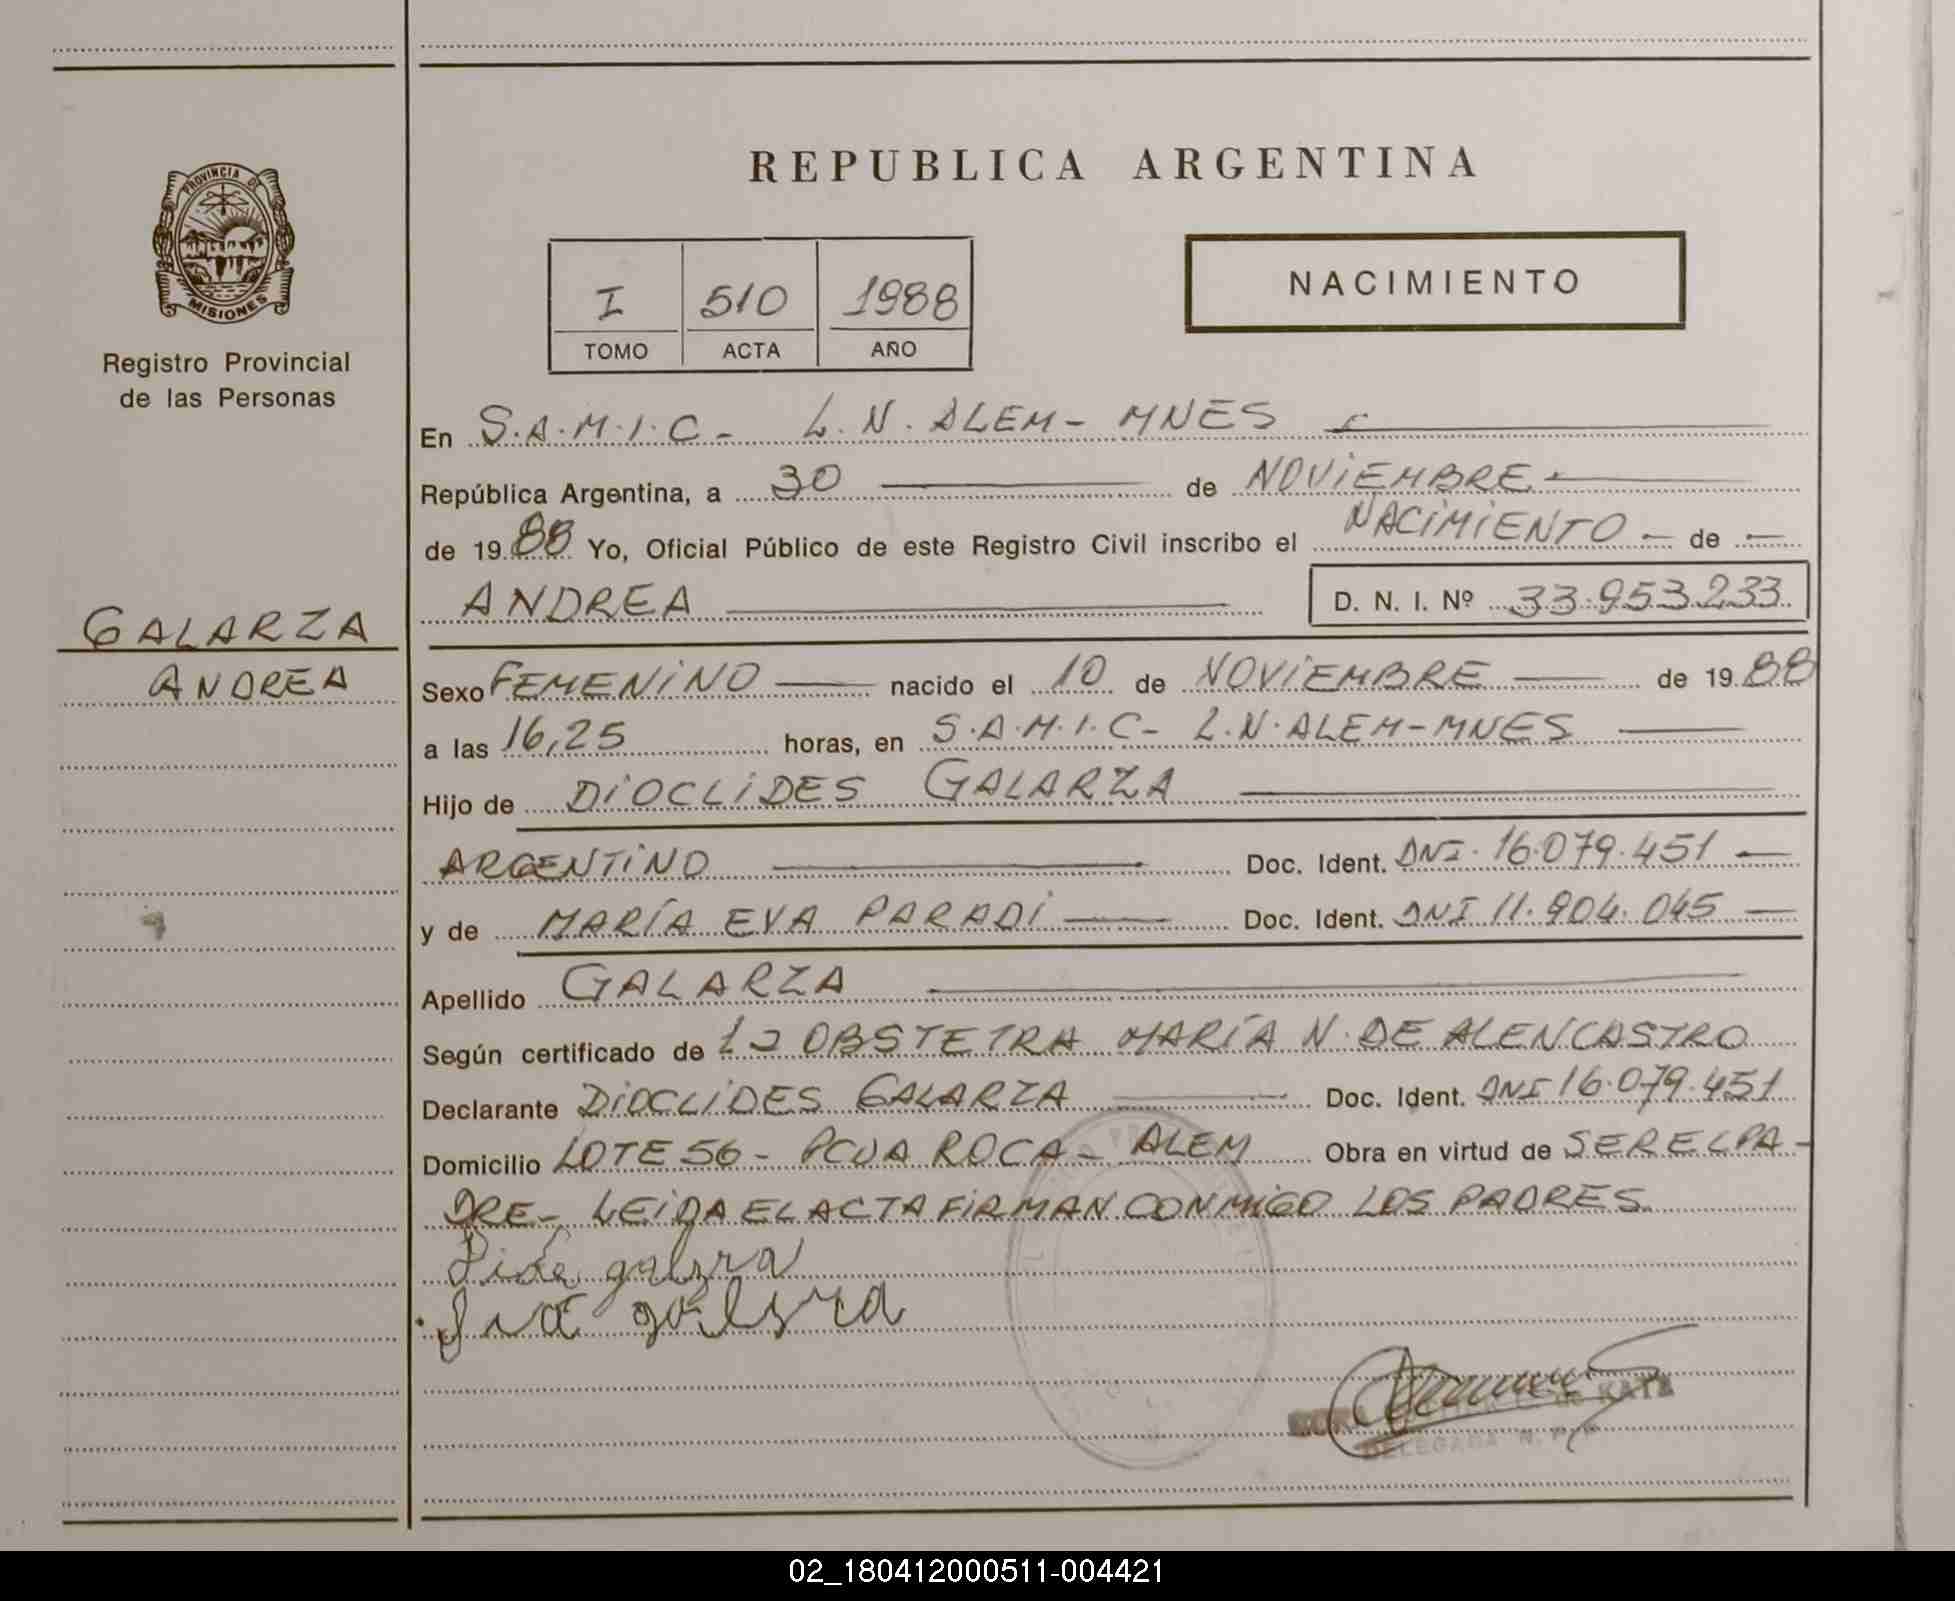 REPUBLICA ARGENTINA
PROVINCIA DE
MISIONES
Registro Provincial
de las Personas
I 510 1988
TOMO ACTA AÑO
NACIMIENTO
En S.A.M.I.C - L.N. ALEM - MNES
República Argentina, a 30 de NOVIEMBRE
de 1988 Yo, Oficial Público de este Registro Civil inscribo el NACIMIENTO de
ANDREA D. N. I. Nº 33.953.233
GALARZA
ANDREA
Sexo FEMENINO nacido el 10 de NOVIEMBRE de 1988
a las 16,25 horas, en S.A.M.I.C - L.N. ALEM - MNES
Hijo de DIOCLIDES GALARZA
ARGENTINO Doc. Ident. DNI. 16.079.451
y de MARÍA EVA PARADI Doc. Ident. DNI 11.904.045
Apellido GALARZA
Según certificado de OBSTETRA MARÍA N. DE ALENCASTRO
Declarante DIOCLIDES GALARZA Doc. Ident. DNI 16.079.451
Domicilio LOTE 56 - PCUA ROCA - ALEM Obra en virtud de SER EL PA-
DRE - LEIDA EL ACTA FIRMAN CONMIGO LOS PADRES.
galzra
DELEGADA
02_180412000511-004421